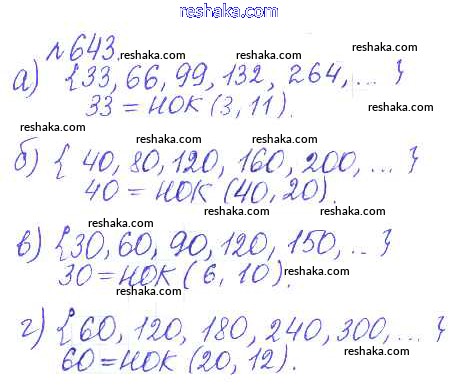 reshaka.com
№643 reshaka.com reshaka.com
а) {33, 66, 99, 132, 264, ... }
reshaka.com reshaka.com
33 = НОК (3, 11). reshaka.com
reshaka.com
reshaka.com reshaka.com
б) { 40, 80, 120, 160, 200, ... }
reshaka.com reshaka.com
40 = НОК (40, 20).
reshaka.com reshaka.com
в) {30, 60, 90, 120, 150, .. }
30 = НОК (6, 10). reshaka.com
reshaka.com
reshaka.com
г) {60, 120, 180, 240, 300, ... }
reshaka.com reshaka.com
60 = НОК (20, 12). reshaka.com